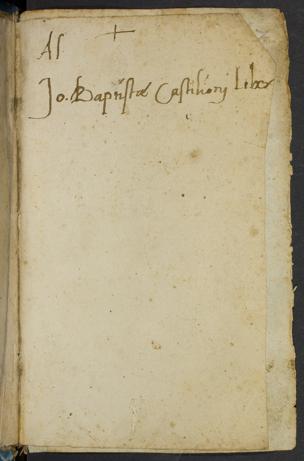 +
Al
Jo. Baptistæ Castilionj Liber